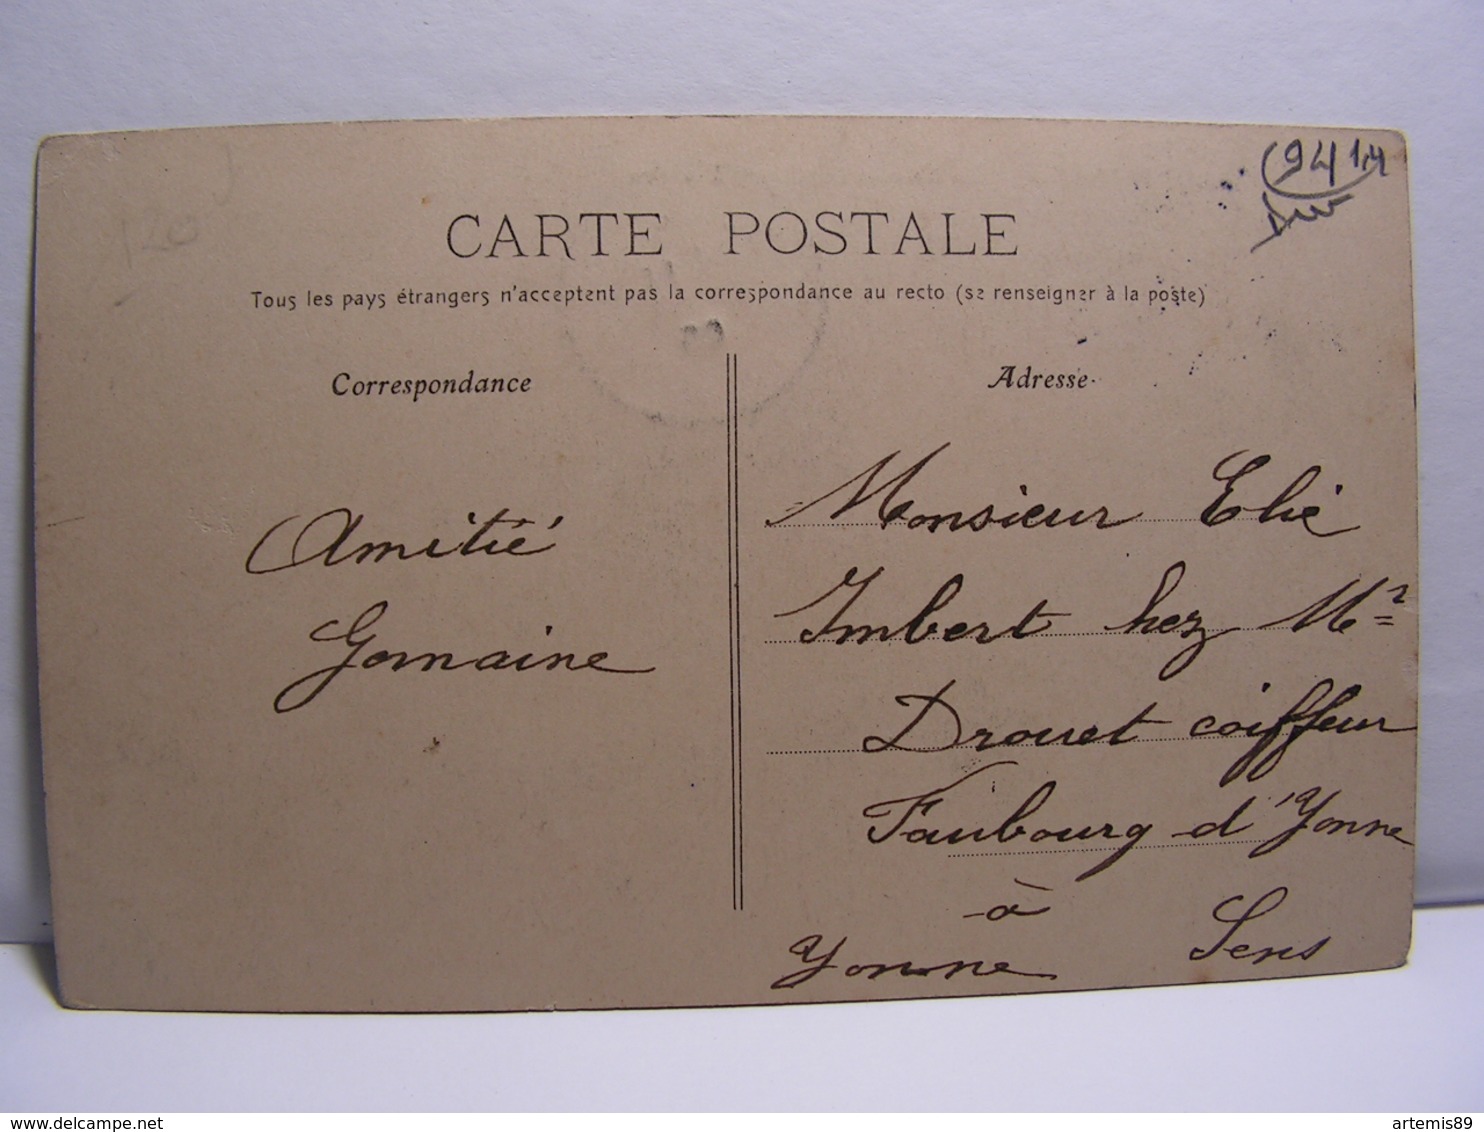 9414
120
CARTE POSTALE
Tous les pays étrangers n'acceptent pas la correspondance au recto (se renseigner à la poste)
Correspondance
Adresse
Amitié
Gomaine
Monsieur Elie
Imbert chez Mr
Drouet coiffeur
Faubourg d'Yonne
à
Sens
Yonne
www.delcampe.net
artemis89